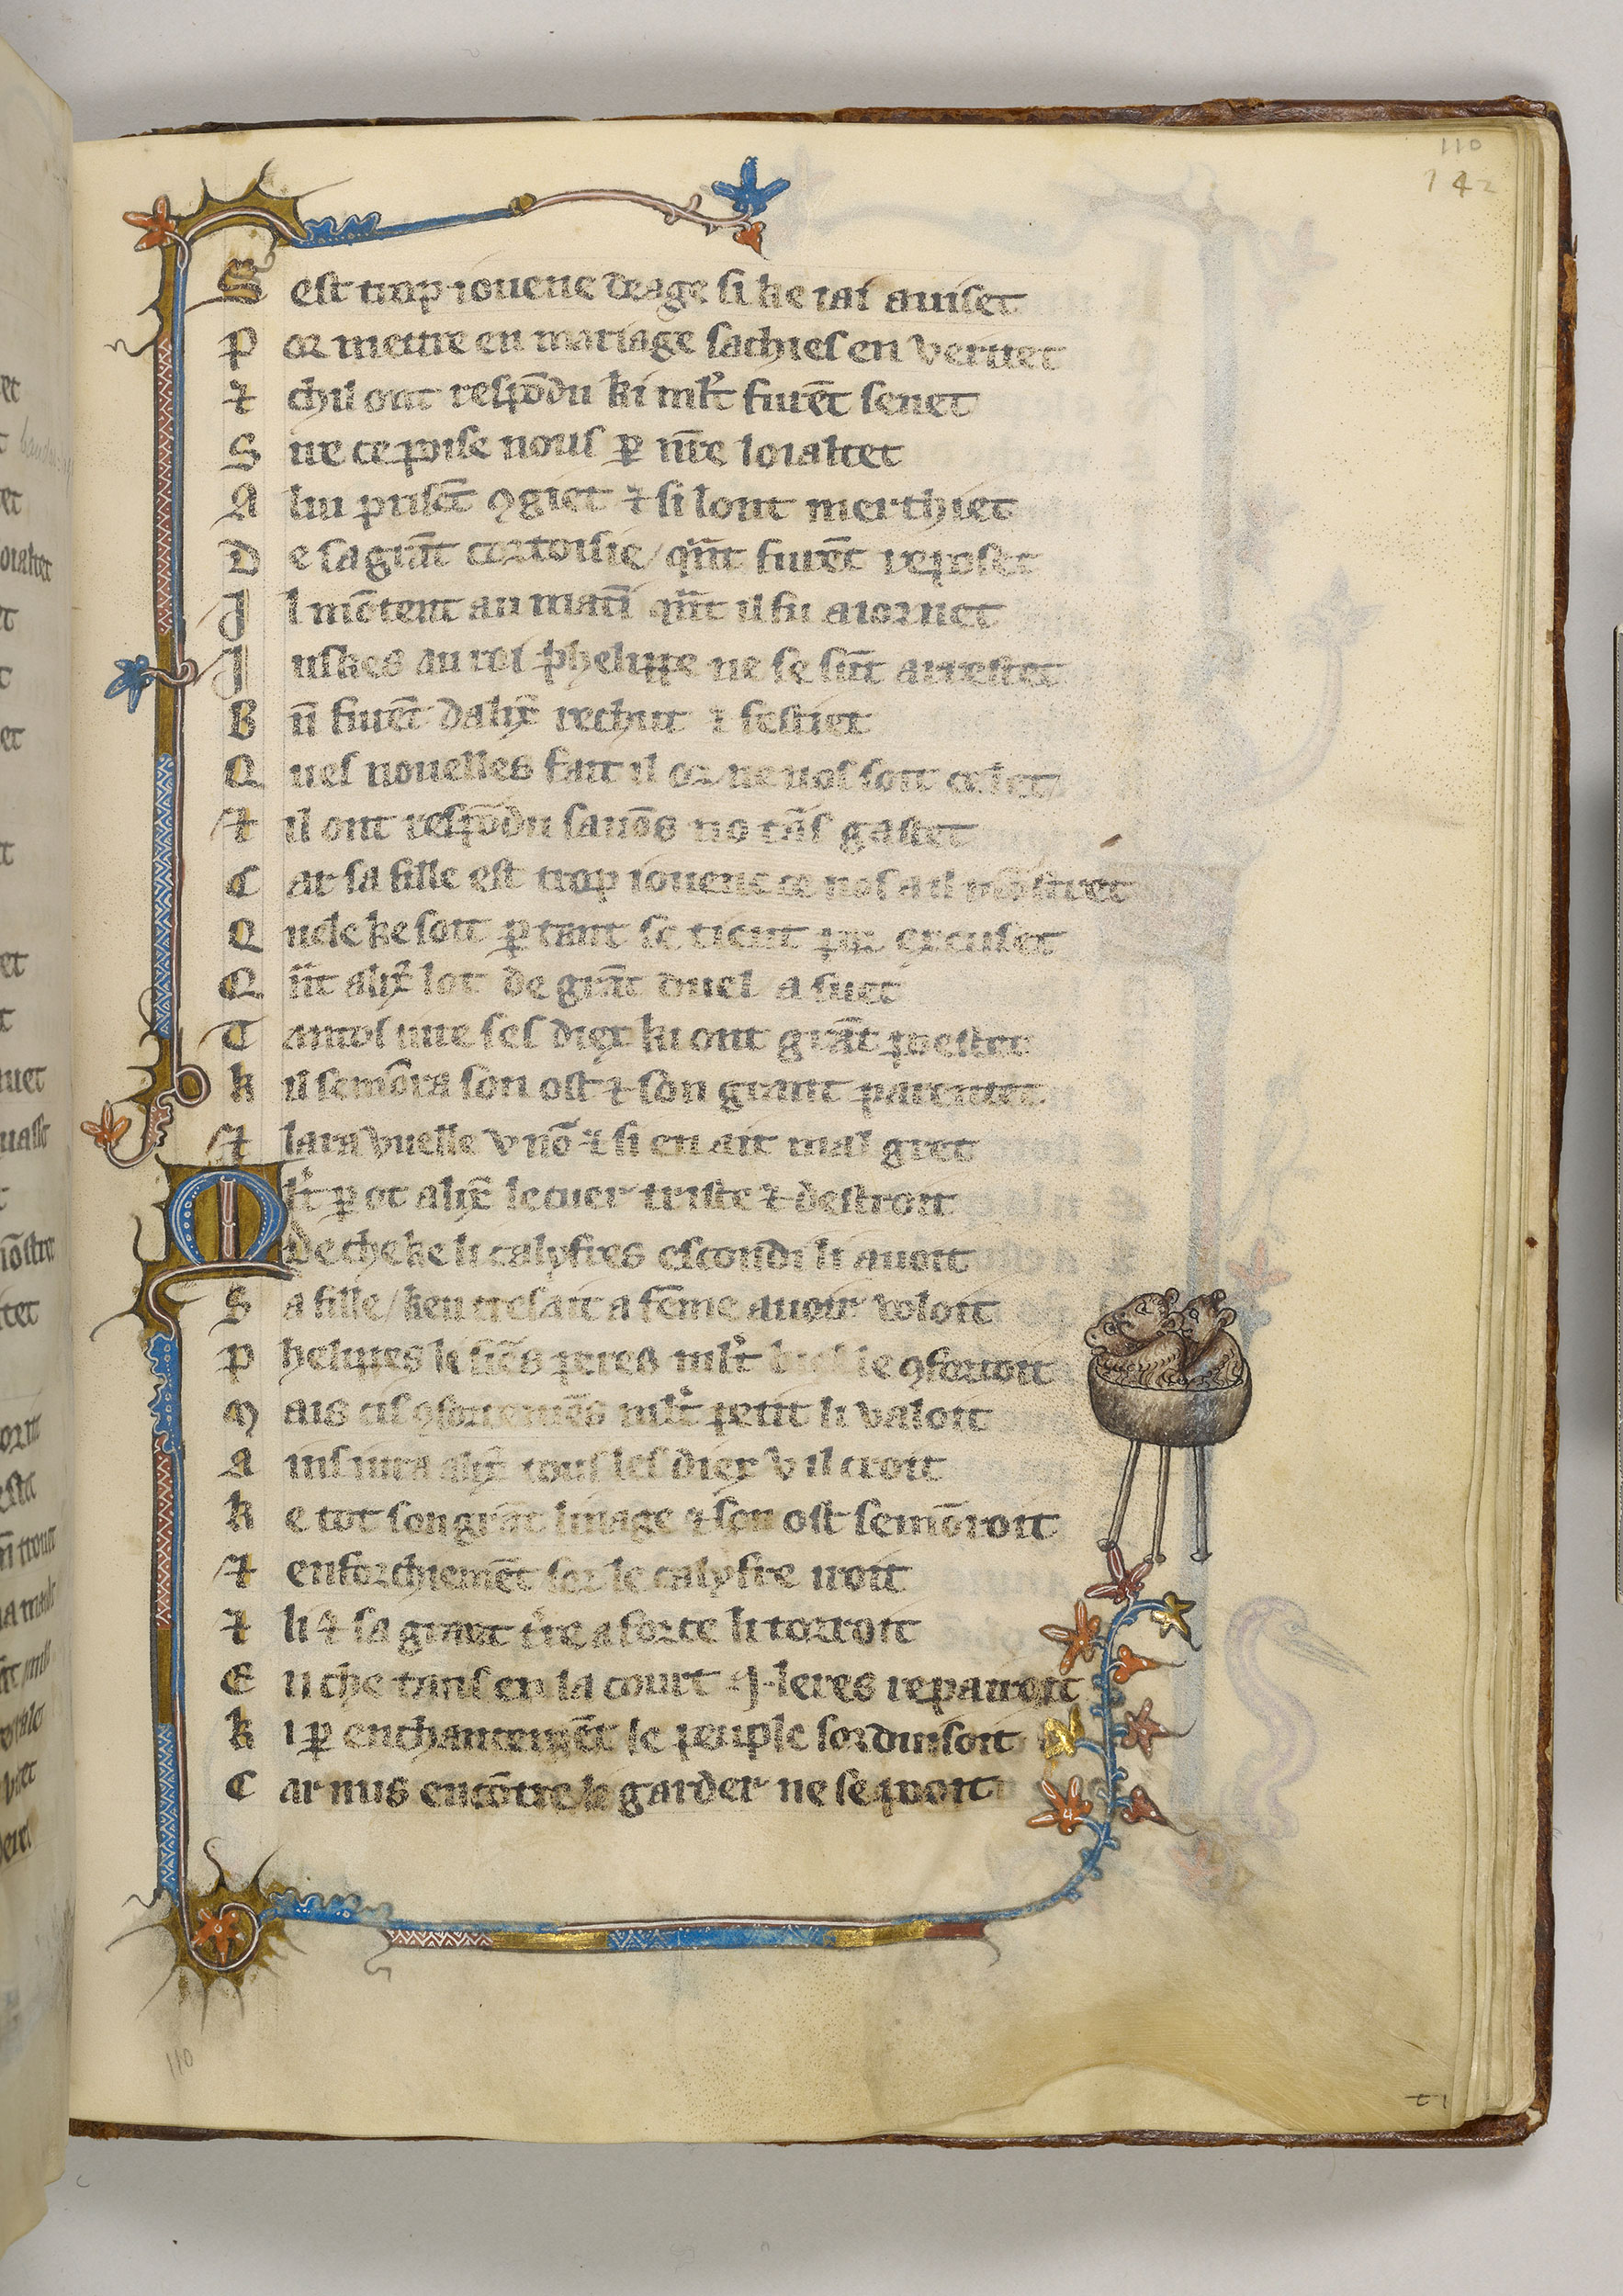 110
142
S est trop iouene deage si ke iai auiset
P or mettre en mariage sachies en veritet
⁊ chil ont respōdu ki ml't furēt senet
S ire ce poise nous ꝑ nr̄e loialtet
A lui prisēt ꝯgiet ⁊ si lont merchiet
D e sa grāt cortoisie / qn̄t furēt reposet
J l mōtent au matī qn̄t il fu aiornet
J uskes au roi phelippe ne se sūt arrestet
B n̄ furēt dalix̄ rechut ⁊ festiet
Q ues nouelles fait il or ne uos soit celet
⁊ il ont respōdu sauōs no tās gastet
C ar sa fille est trop iouene ce nos a il mōstret
Q uele ke soit ꝑ tant se tient por excuset
Q n̄t alix̄ lot de grāt duel a suet
T antos iure ses diex ki ont grāt poestet
k il semōra son ost ⁊ son grant parentet
⁊ lara vuelle v nō ⁊ si en ait mal gret
M l't ꝑ ot alix̄ le cuer triste ⁊ destroit
De che ke li calyfres escondi li auoit
S a fille / ken tresait a fēme auoir voloit
P helippes li siēs peres ml't biel le ꝯfortoit
M ais cis ꝯfortemēs ml't petit li valoit
A ins iura alix̄ tous les diex v il croit
k e tot son grāt linage ⁊ son ost semōroit
⁊ enforchiemēt sor le calyfre iroit
⁊ li ⁊ sa grant t're a force li torroit
E n che tans en la court .j. leres repairoit
k i ꝑ enchantemēt le peuple sorduisoit
C ar nus encōtre li garder ne se pooit
110